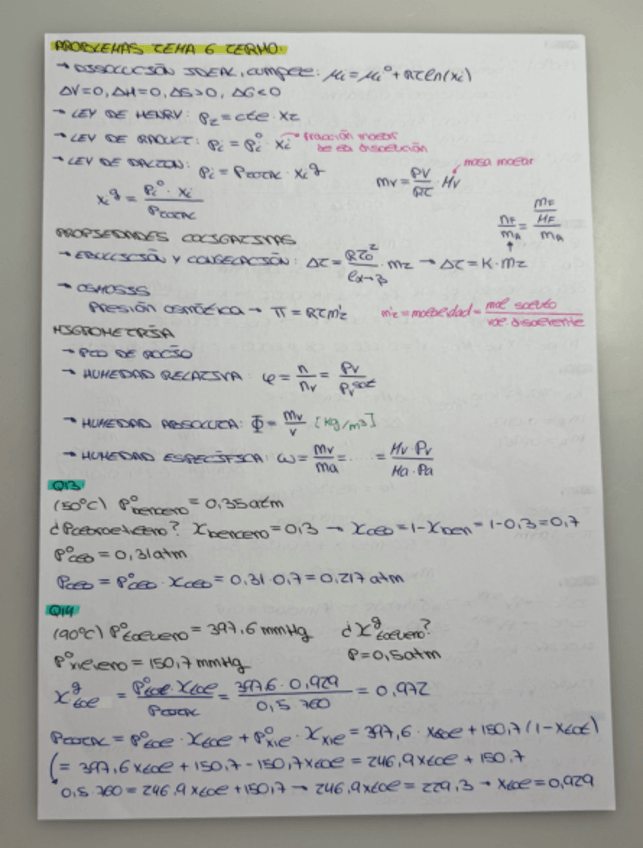 PROBLEMAS TEMA 6 TERMO:
→ DISOLUCIÓN IDEAL, cumple: μi = μi° + RTln(xi)
ΔV=0, ΔH=0, ΔS>0, ΔG<0
→ LEY DE HENRY: P2 = cte · x2
→ LEY DE RAOULT: Pi = Pi° · xi → fracción molar de la disolución
→ LEY DE DALTON: Pi = PTOTAL · xi^g
mv = PV/RT · Mv → masa molar
xi^g = Pi° · xi / PTOTAL
nF/mA = (mF/MF)/mA
PROPIEDADES COLIGATIVAS
→ EBULLICIÓN Y CONGELACIÓN: ΔT = RT0²/lα→β · m2 → ΔT = K · m2
→ OSMOSIS
PRESIÓN OSMÓTICA → Π = RTm'2
m'2 = molaridad = mol soluto/vol disolvente
HIGROMETRÍA
→ PTO DE ROCÍO
→ HUMEDAD RELATIVA: φ = n/nv = Pv/Pv^sat
→ HUMEDAD ABSOLUTA: Φ = mv/v [kg/m³]
→ HUMEDAD ESPECÍFICA: ω = mv/ma = ... = Mv · Pv / Ma · Pa
Q13
(50°C) P°benceno = 0,35atm
¿Pclorobenceno? xbenceno = 0,3 → xclo = 1-xben = 1-0,3 = 0,7
P°clo = 0,31atm
Pclo = P°clo · xclo = 0,31 · 0,7 = 0,217 atm
Q14
(90°C) P°tolueno = 397,6 mmHg ¿x^g tolueno?
P°xileno = 150,7 mmHg P=0,5atm
x^g tol = P°tol · xtol / PTOTAL = 397,6 · 0,929 / 0,5 · 760 = 0,972
PTOTAL = P°tol · xtol + P°xil · xxil = 397,6 · xtol + 150,7 (1-xtol)
= 397,6xtol + 150,7 - 150,7xtol = 246,9xtol + 150,7
0,5 · 760 = 246,9xtol + 150,7 → 246,9xtol = 229,3 → xtol = 0,929